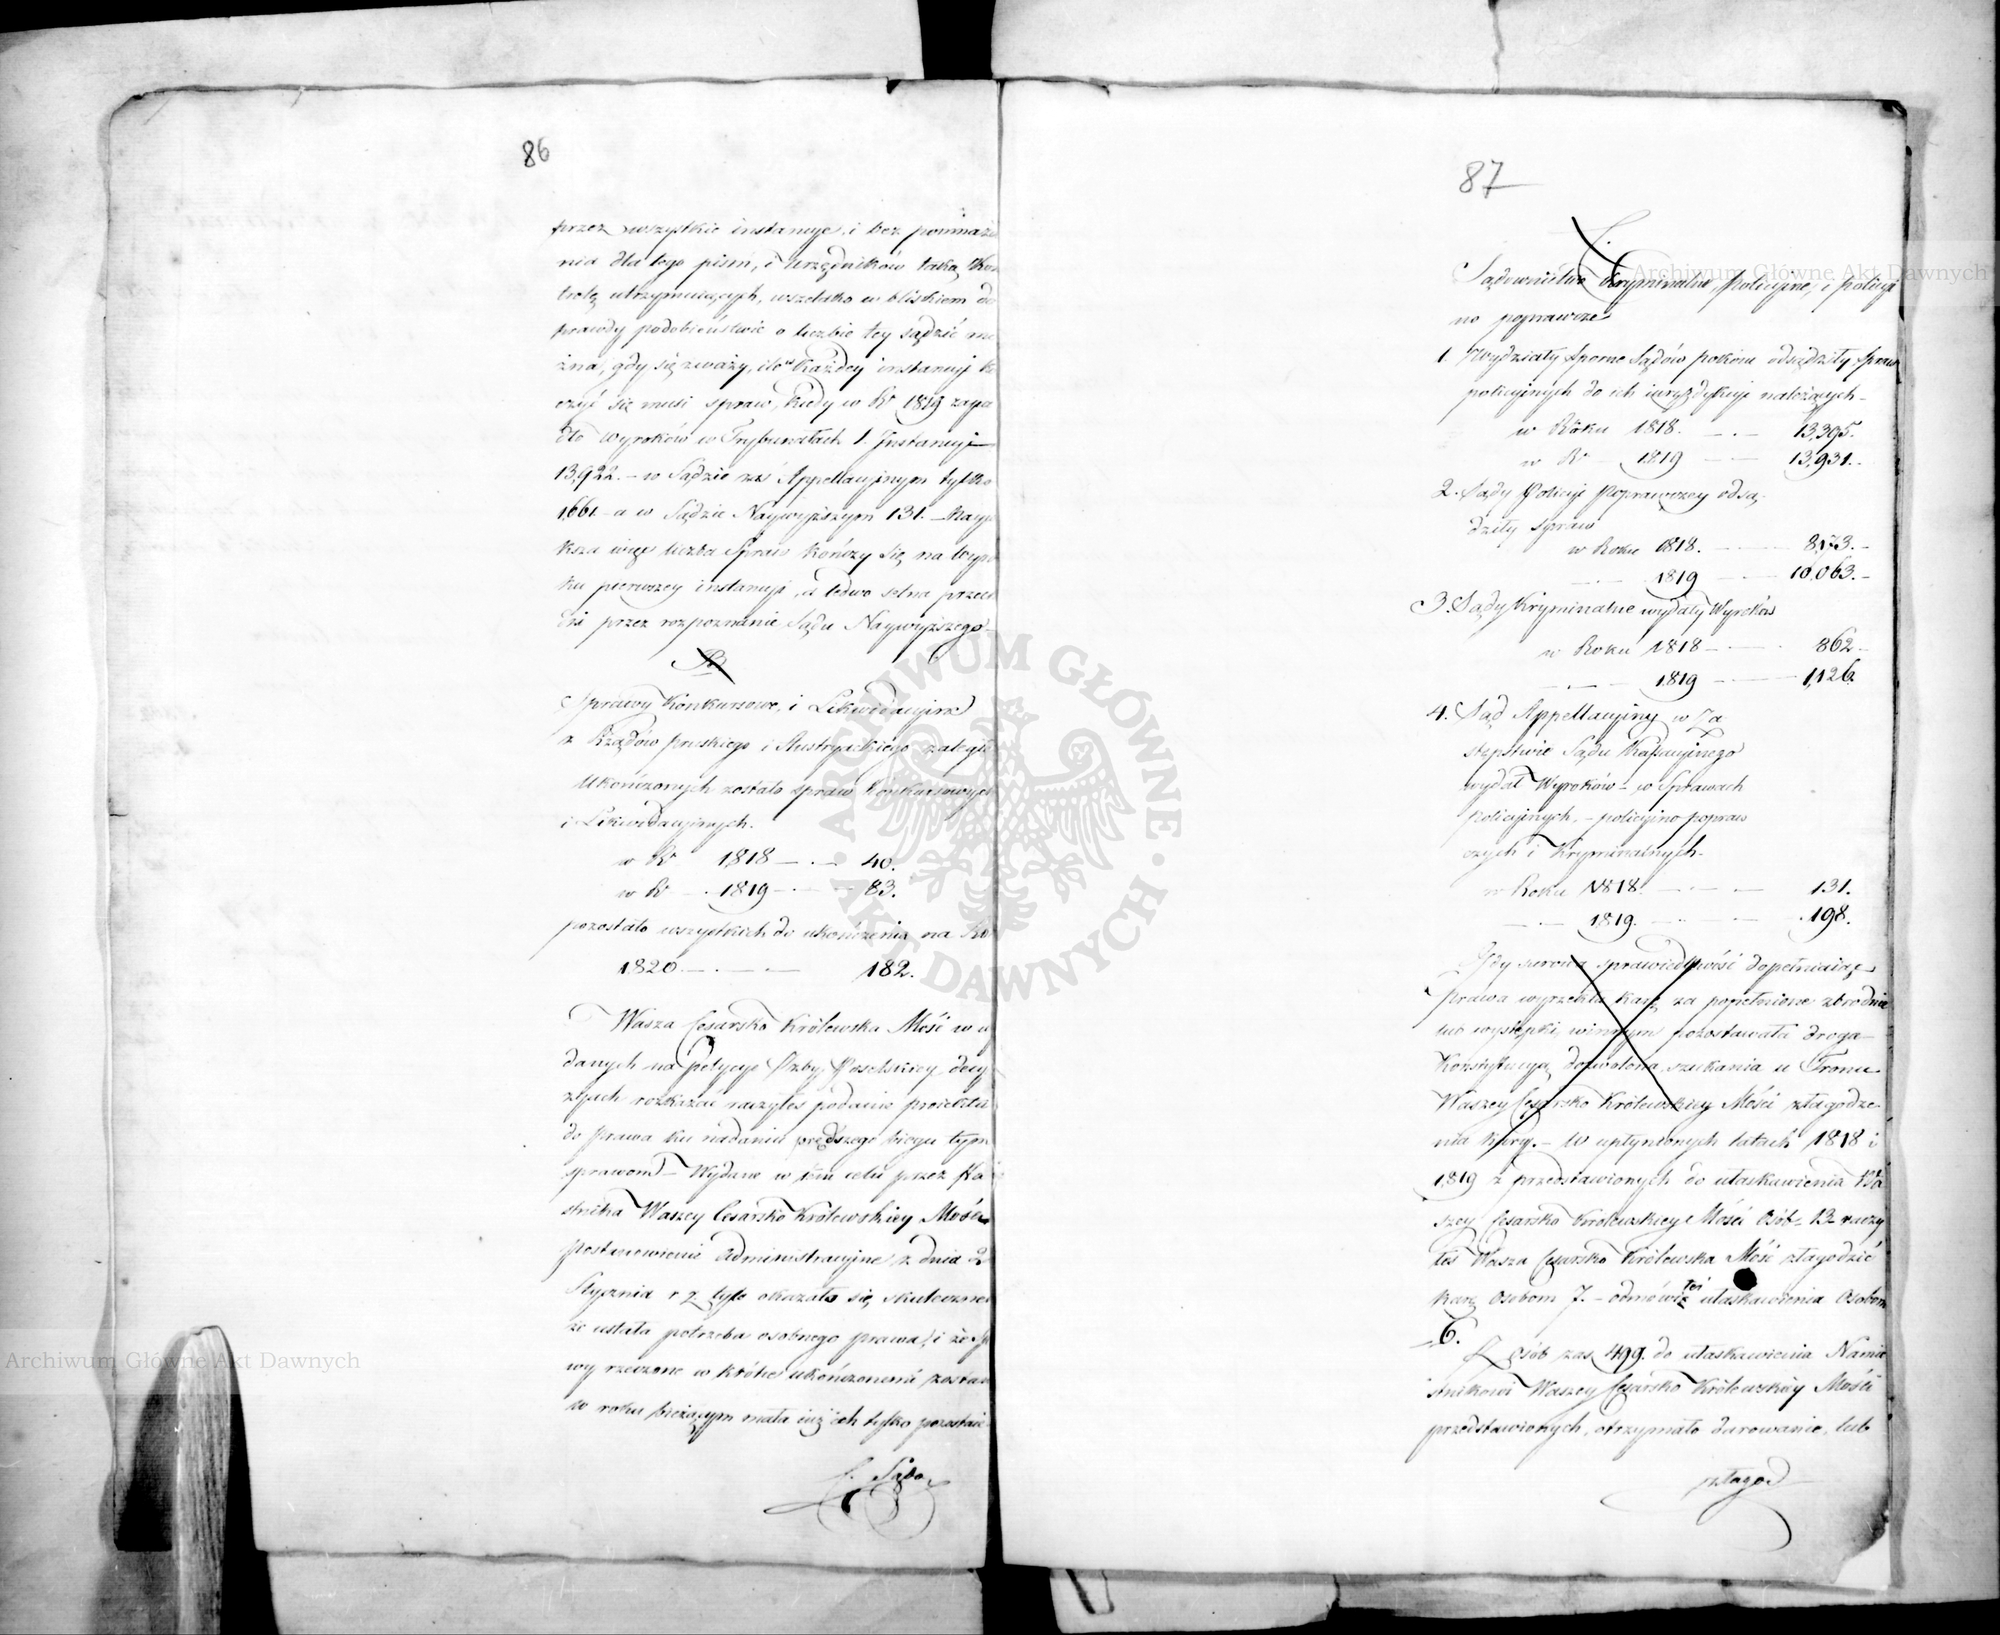 86
przez wszystkie instancye, i bez pomnaża
nia dla tego pism, i Urzędników taką Kon
trolę utrzymuiących, wszelako w bliskiem do
prawdy podobieństwie o liczbie tey sądzić mo
żna, gdy się zważy, ile w Każdey instancyi ko
czyć się musi spraw, kiedy w R. 1819 zapa
dło wyroków w Trybunałach I. Instancyi
13,922. – w Sądzie zaś Appellacyinym tylko
1,661 – a w Sądzie Naywyższym 131. – Nayw
ksza więc liczba Spraw kończy się na wyro
ku pierwszey instancyi, a ledwo setna przech
dzi przez rozpoznanie Sądu Naywyższego –
B
Sprawy Konkursowe, i Likwidacyine
z Rządów pruskiego i Austryackiego zaległe
Ukończonych zostało spraw Konkursowych
i Likwidacyinych.
w R. 1818 – . – 40.
w R – . 1819 – . – 83.
pozostało wszystkich do ukończenia na Ro
1820 – . – – 182.
Wasza Cesarsko Królewska Mość w wy
danych na petycye Izby Poselskiey decy
zyach rozkazać raczyłeś podanie proiektu
do prawa ku nadaniu prędszego biegu tym
sprawom – Wydane w tym celu przez Na
stnika Waszey Cesarsko Królewskiey Mości
postanowienie administracyjne z dnia 2
Stycznia r z tyle okazało się skuteczne
że ustała potrzeba osobnego prawa, i że Sp
wy rzeczone w krótce ukończonemi zostan
w roku bieżącym mała iuż ich tylko pozostaie
Sądo
87
C.
Sądownictwo Kryminalne, Policyine, i policyi
no poprawcze
1. Wydziały Sporne Sądów pokoiu odsądziły Spraw
policyinych do ich iurysdykcyi należących –
w Roku 1818. – . – 13,395.
w R – 1819 – – 13,931. –
2. Sądy Policyi Poprawczey odsą-
dziły spraw
w Roku 1818. – – 8,173. –
– . – 1819 – – 10,063. –
3. Sądy Kryminalne wydały Wyroków
w Roku 1818 – – . 862 –
– . – 1819 – – 1,126.
4. Sąd Appellacyiny w Za
stępstwie Sądu Kassacyinego
wydał Wyroków – w Sprawach
policyinych, – policyino popraw
czych i Kryminalnych.
w Roku 1818. – – – 131.
– . – 1819. – – – . 198.
Gdy surowa sprawiedliwość dopełniaiąc
prawa wyrzekła karę za popełnione zbrodnie
lub występki, winnym pozostawała droga
Konstytucyą dozwolona szukania u Tronu
Waszey Cesarsko Królewskiey Mości złagodze
nia kary. – W upłynionych latach 1818 i
1819 z przedstawionych do ułaskawienia Wa
szey Cesarsko Królewskiey Mości Osób 13 raczy
łeś Wasza Cesarsko Królewska Mość złagodzić
karę osobom 7. – odmówiłeś ułaskawienia Osobom
6.
Z osób zaś 499. do ułaskawienia Namie
stnikowi Waszey Cesarsko Królewskiey Mości
przedstawionych, otrzymało darowanie, lub
złagod
ARCHIWUM GŁÓWNE AKT DAWNYCH
Archiwum Główne Akt Dawnych
Archiwum Główne Akt Dawnych